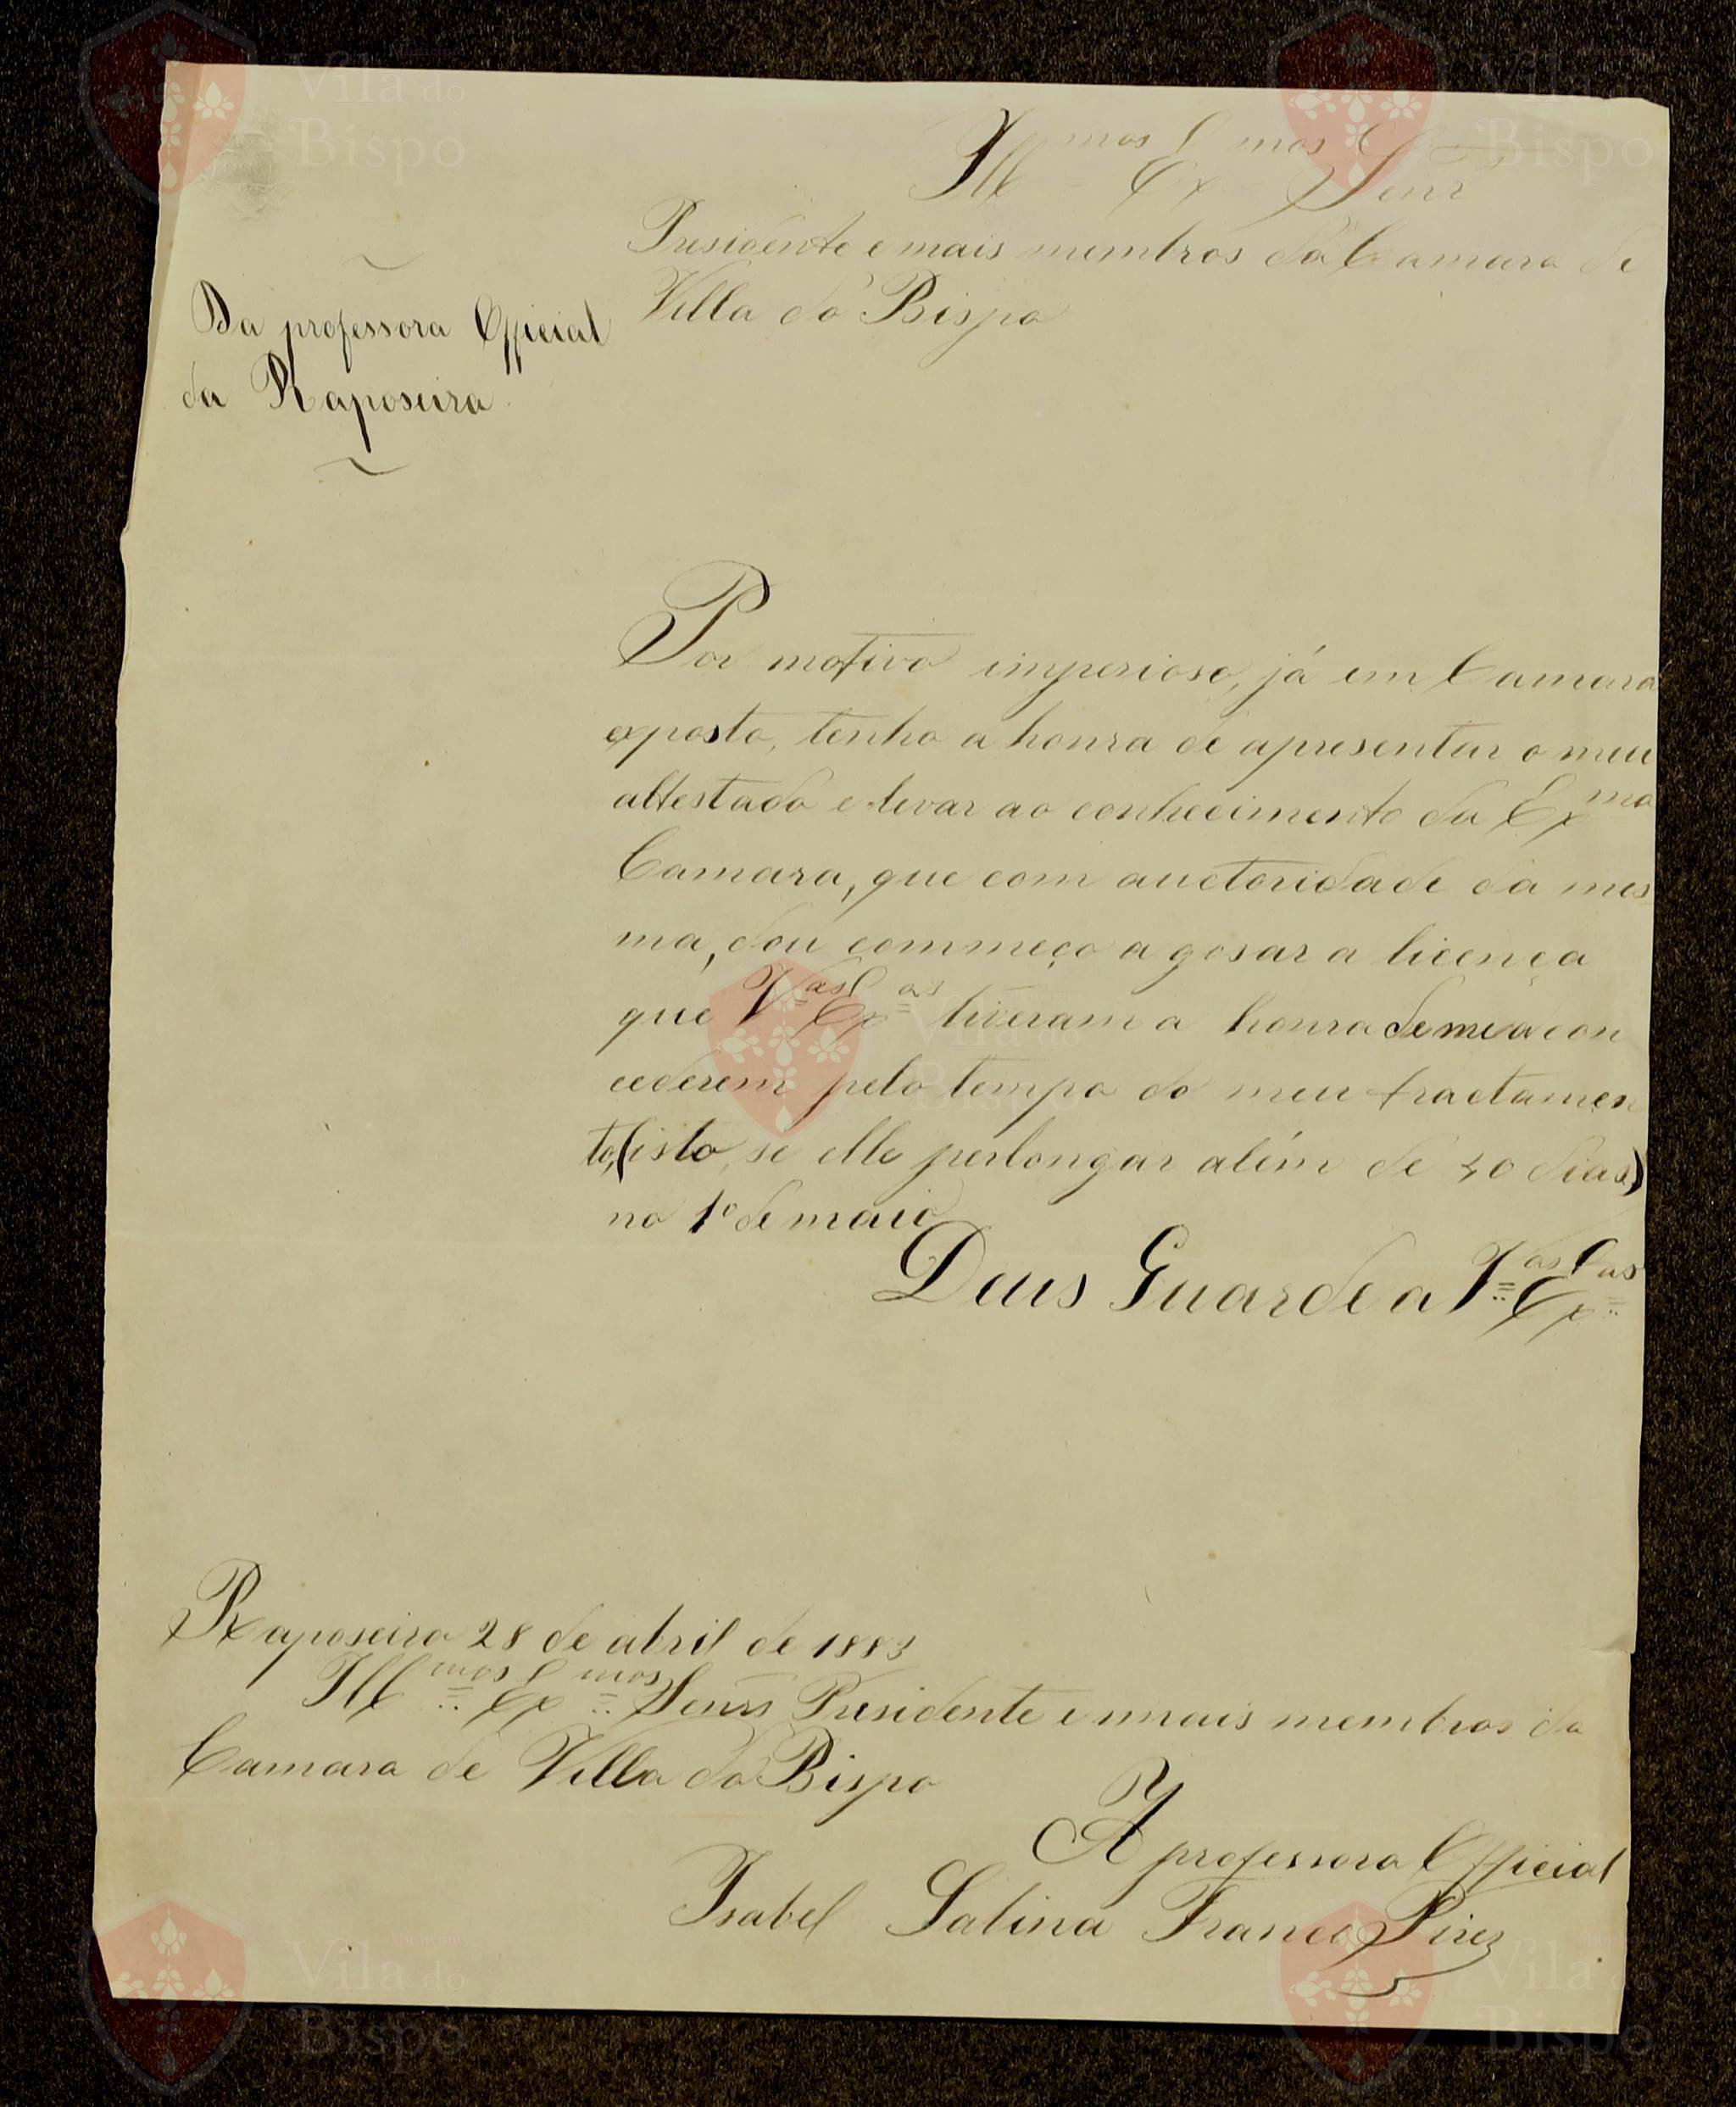 Ill.mos Ex.mos Senrs
Presidente e mais membros da Camara de
Villa do Bispo
Da professora Official
da Raposeira
Por motivo imperioso, já em Camara
exposto, tenho a honra de apresentar o meu
attestado e levar ao conhecimento da Exma
Camara, que com auctoridade da mes
ma, dou commeço a gosar a licença
que V.as Ex.as tiveram a honra de me a con
cederem pelo tempo do meu tractamen
to, (isto, se elle perlongar além de 30 dias)
no 1º de maio
Deus Guarde a V.as Ex.as
Raposeira 28 de abril de 1883
Ill.mos Ex.mos Senrs Presidente e mais membros da
Camara de Villa do Bispo
A professora Official
Isabel Salina Franco Pirez
Vila do
Bispo
Vila do
Bispo
Vila do
Bispo
Vila do
Bispo
Vila do
Bispo